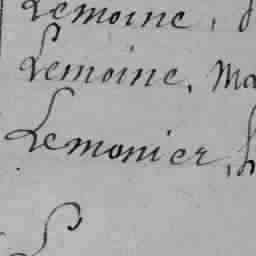 Lemoine,
Lemoine, Ma
Lemonier,